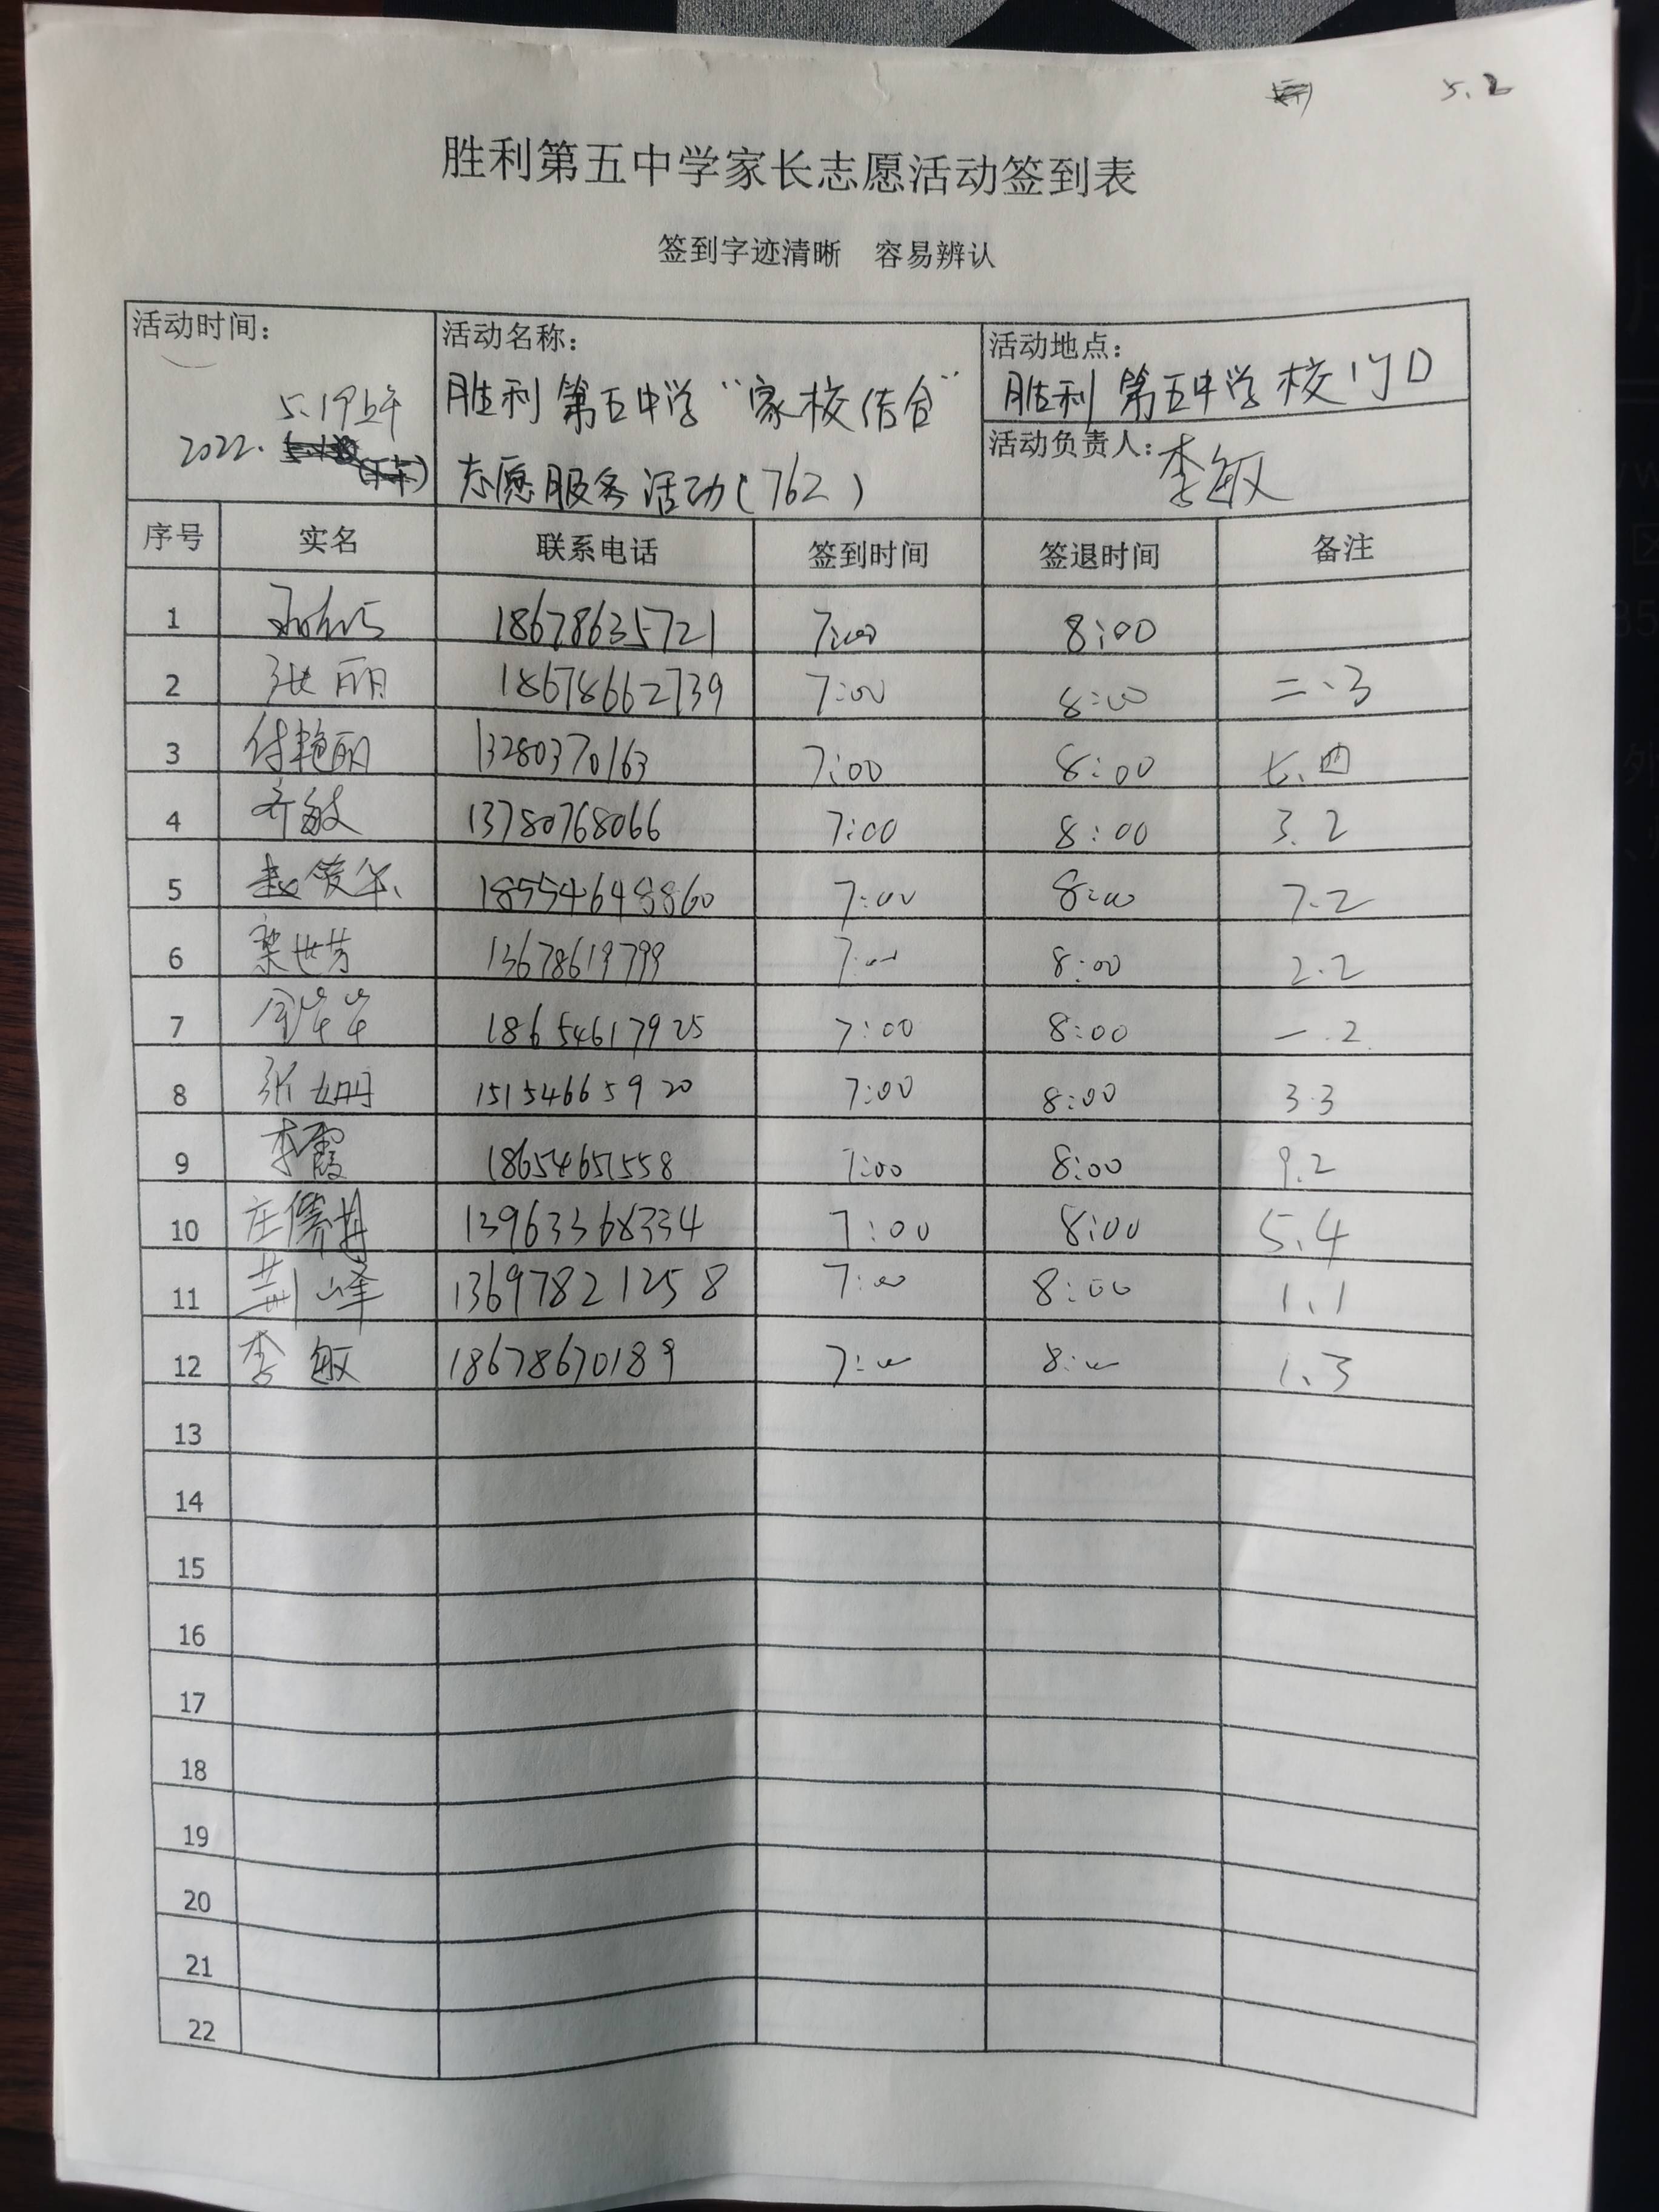 5.2
胜利第五中学家长志愿活动签到表
签到字迹清晰 容易辨认
活动时间: 2022. 5.19上午
活动名称: 胜利第五中学“家校结合”
志愿服务活动(762)
活动地点: 胜利第五中学校门口
活动负责人: 李敏
序号 实名 联系电话 签到时间 签退时间 备注
1 18678635721 7:00 8:00
2 张丽 18678662739 7:00 8:00 二、3
3 付艳丽 13280370163 7:00 8:00 七、四
4 齐敏 13780768066 7:00 8:00 3.2
5 赵俊华 18554648860 7:00 8:00 7.2
6 梁世芳 13678619799 7:00 8:00 2.2
7 金岸岸 18654617925 7:00 8:00 一.2
8 张姗 15154665920 7:00 8:00 3.3
9 李霞 18654651558 7:00 8:00 9.2
10 庄儒 13963368334 7:00 8:00 5.4
11 荆峰 13697821258 7:00 8:00 1.1
12 李敏 18678670189 7:00 8:00 1、3
13
14
15
16
17
18
19
20
21
22